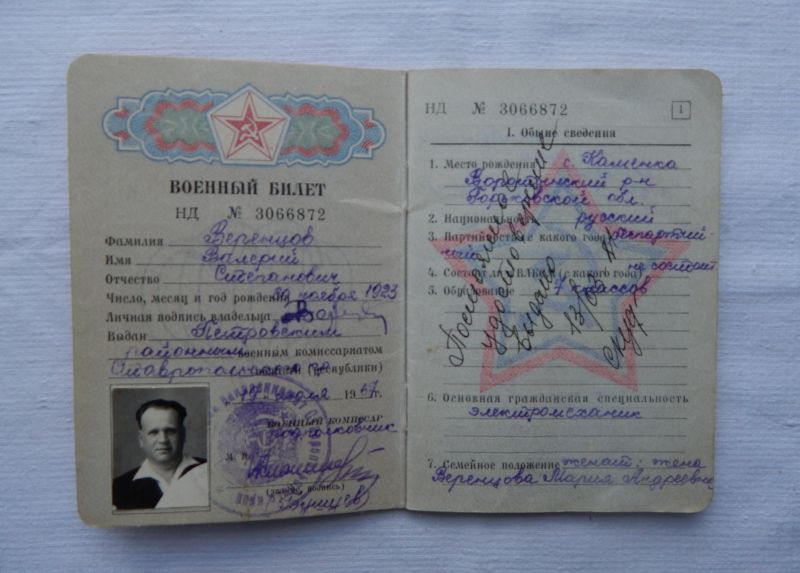 ВОЕННЫЙ БИЛЕТ
НД № 3066872
Фамилия Веренцов
Имя Валерий
Отчество Степанович
Число, месяц и год рождения 20 ноября 1923
Личная подпись владельца
Выдан Петровским
районным военным комиссариатом
Ставропольского области (республики)
июля 1967 г.
ВОЕННЫЙ КОМИССАР
подполковник
М. П.
(звание, подпись)
НД № 3066872 1
I. Общие сведения
1. Место рождения с. Каменка
Воротынский р-н
Горьковской обл.
2. Национальность русский
3. Партийность и с какого года беспартий-
ный
4. Состоял ли в ВЛКСМ (с какого года) не состоит
5. Образование 7 классов
Постоянное
удостоверение
выдано
13/03 81
6. Основная гражданская специальность
электромеханик
7. Семейное положение женат: жена
Веренцова Мария Андреевна